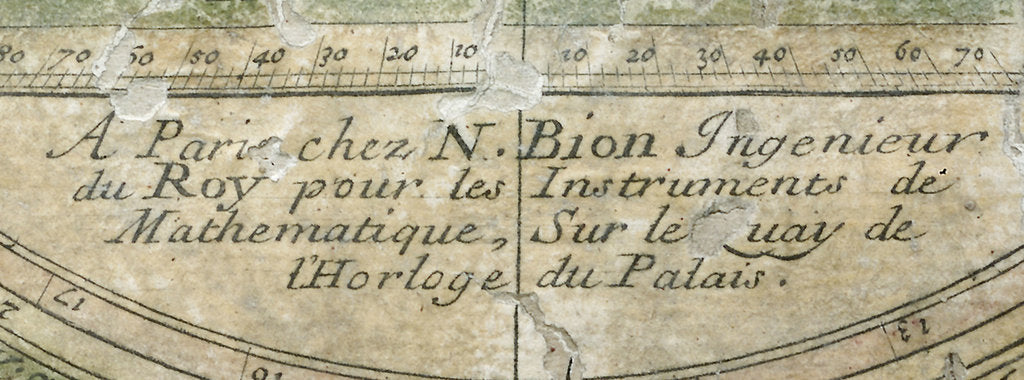 80 70 60 50 40 30 20 10 10 20 30 40 50 60 70
A Paris chez N. Bion Ingenieur
du Roy pour les Instruments de
Mathematique, Sur le Quay de
l'Horloge du Palais.
17 23
16